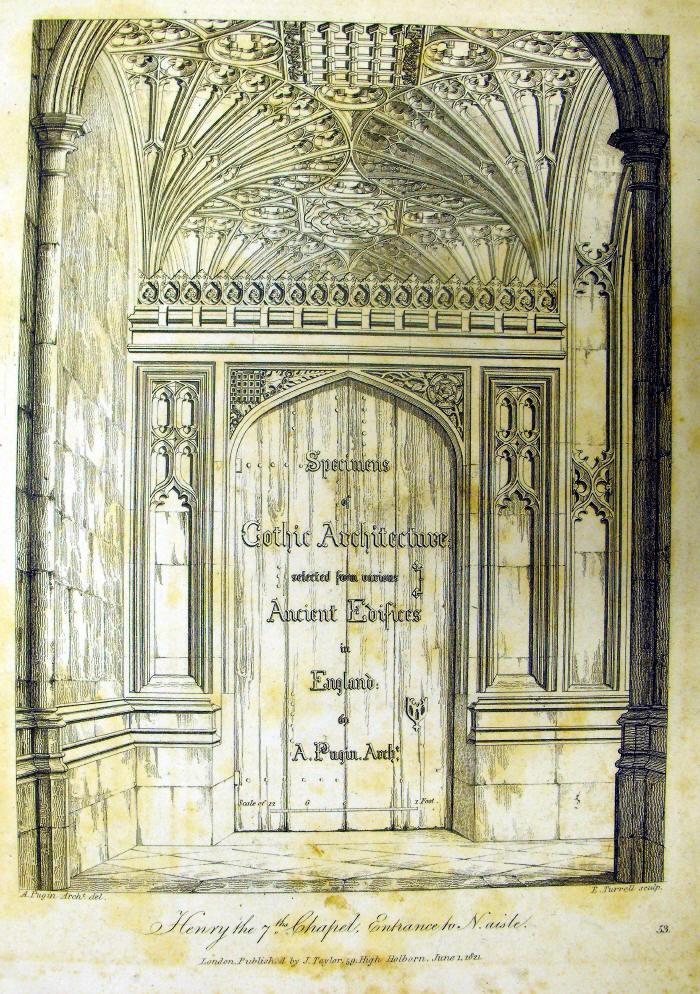 Specimens
of
Gothic Architecture;
selected from various
Ancient Edifices
in
England:
by
A. Pugin. Archt.
Scale of 12 6 1 Foot
A. Pugin Archt. del.
E. Turrell sculp.
Henry the 7ths. Chapel, Entrance to N. aisle.
53.
London, Publish'd by J. Taylor, 59, High Holborn, June 1, 1821.